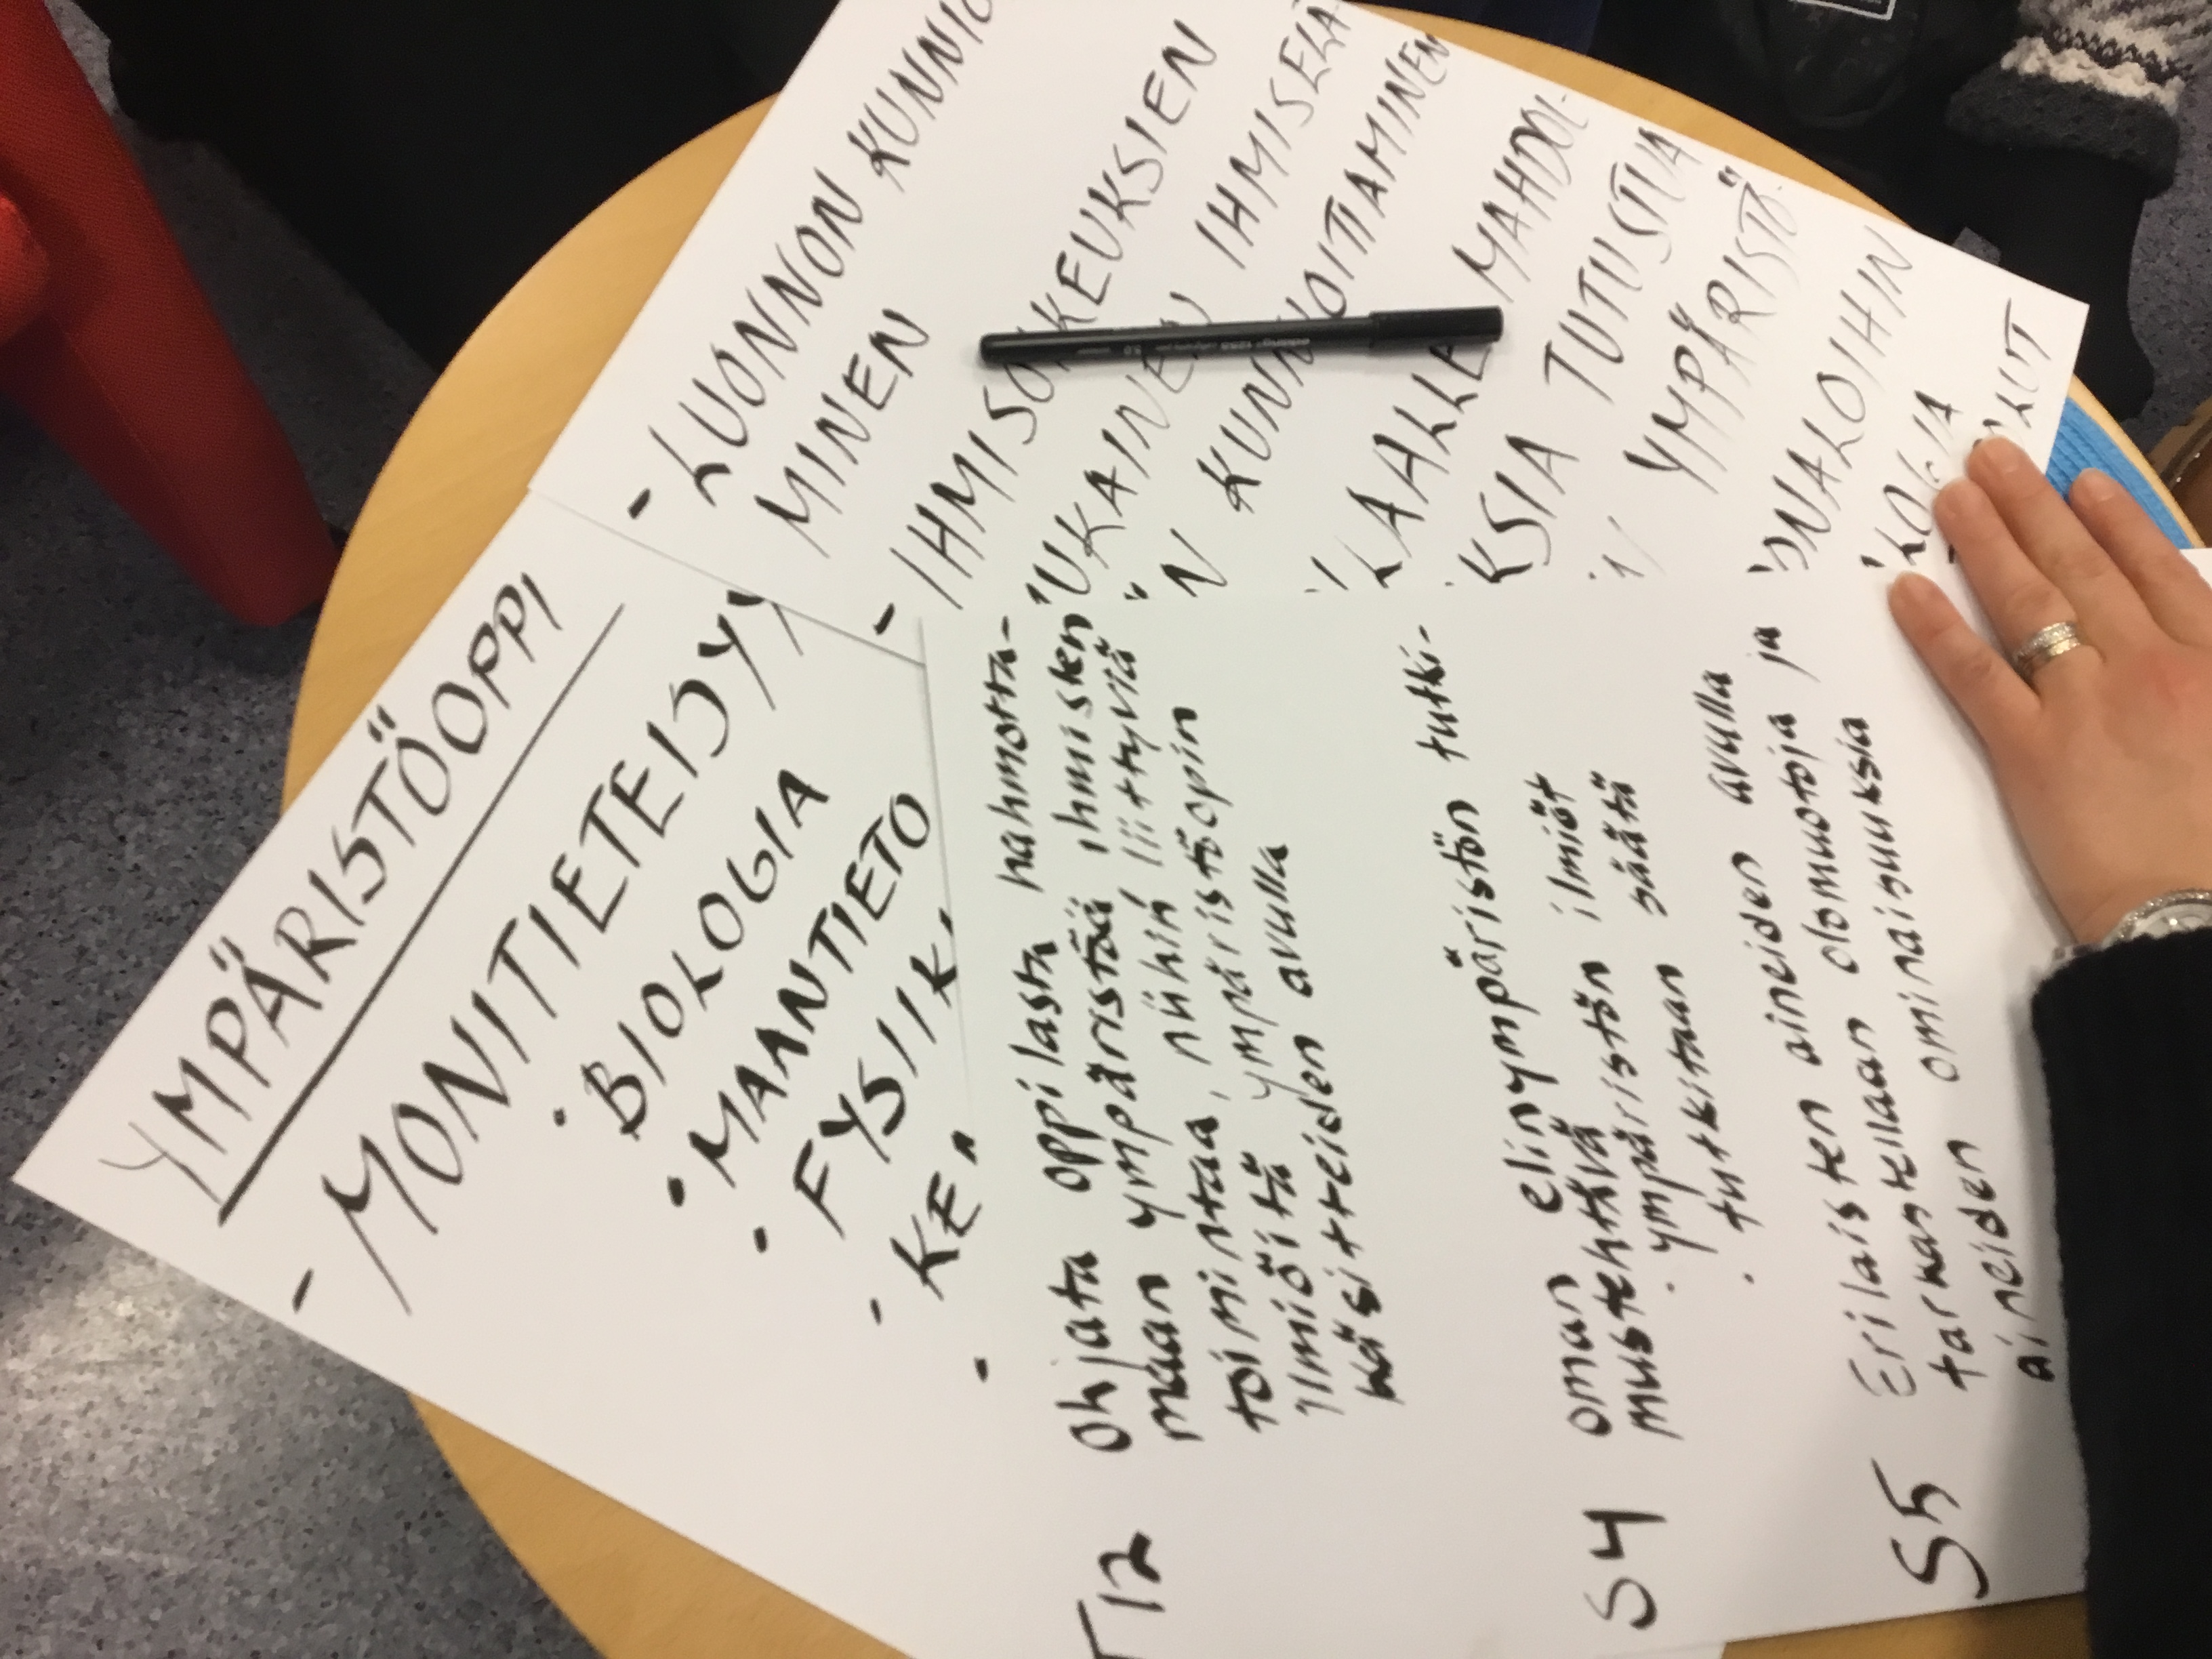 YMPÄRISTÖOPPI
- MONITIETEISYY
• BIOLOGIA
• MAANTIETO
• FYSIIK
• KE
- LUONNON KUNNIO
MINEN
- IHMISOIKEUKSIEN
UKAINEN IHMISELÄ
N KUNNIOITTAMINEN
KAIKILLE MAHDOL-
KSIA TUTUSTUA
YMPÄRISTÖ
ONALOIHIN
T12 Ohjata oppilasta hahmotta-
maan ympäristöä, ihmisten
toimintaa, niihin liittyviä
ilmiöitä ympäristöopin
käsitteiden avulla
S4 oman elinympäristön tutki-
mustehtävä
• ympäristön ilmiöt
• tutkitaan säätä
S5 Erilaisten aineiden avulla
tarkastellaan olomuotoja ja
aineiden ominaisuuksia